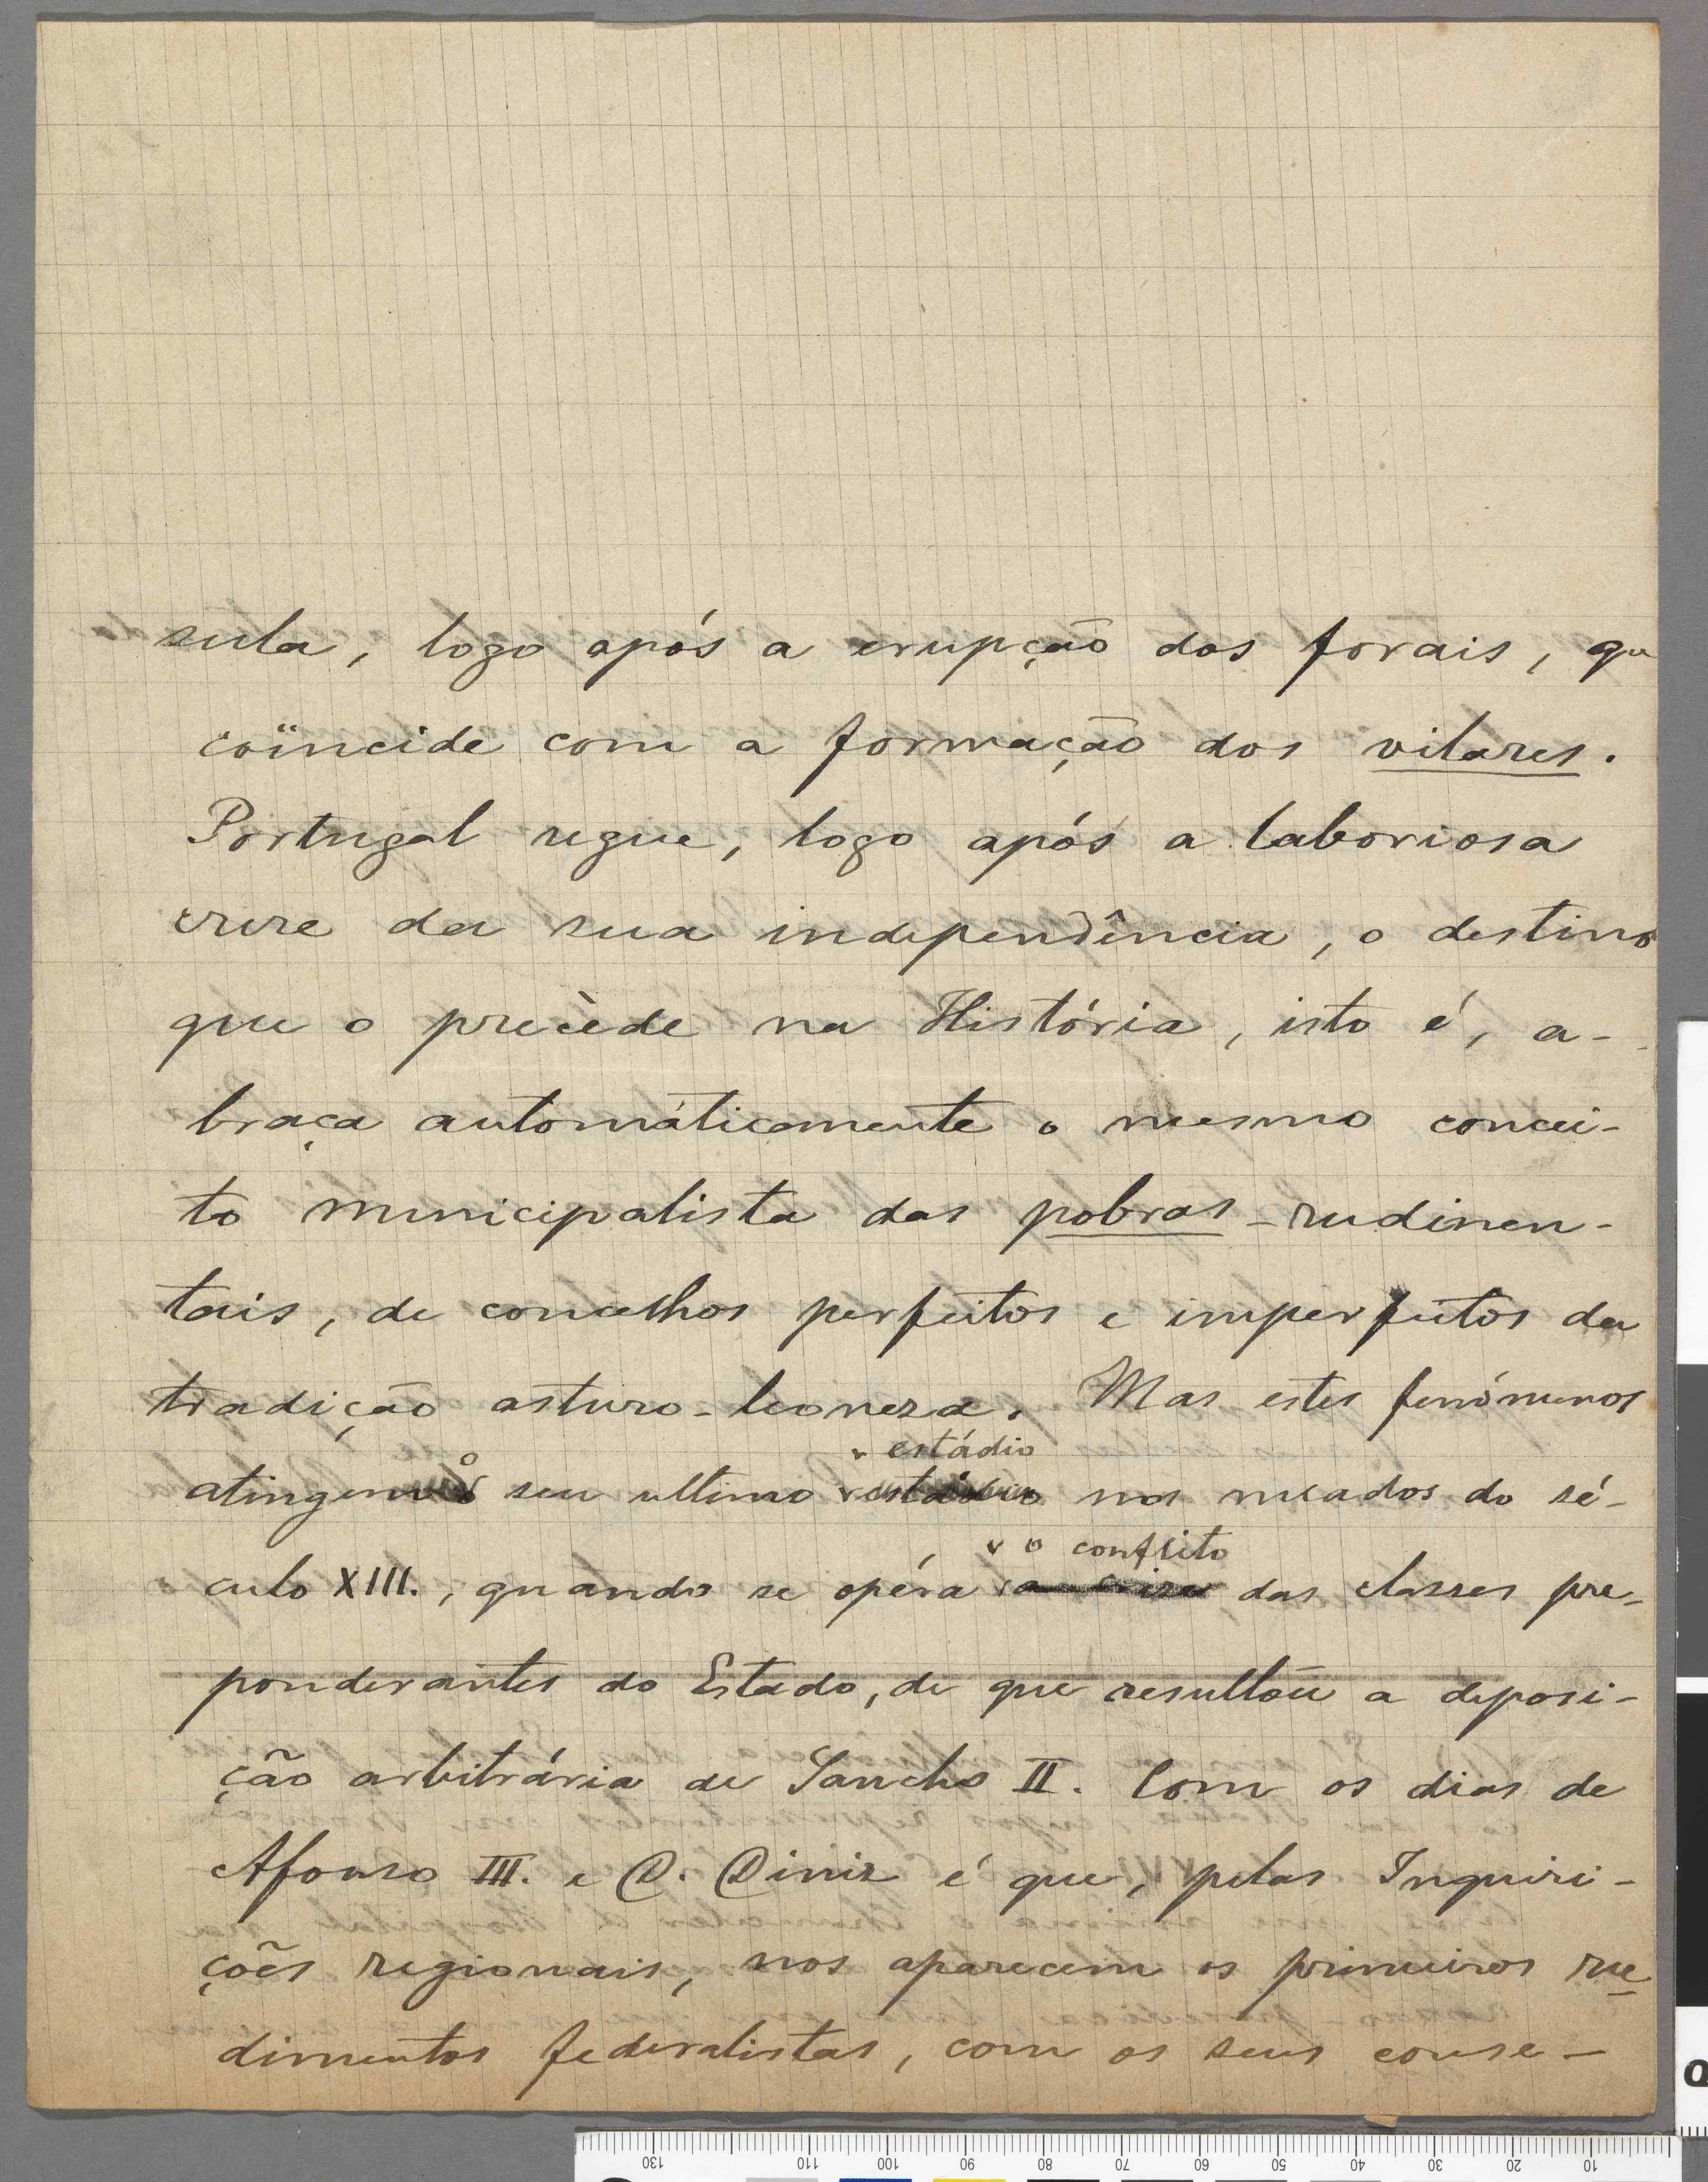 sula, logo após a erupção dos forais, qu
coïncide com a formação dos vilares.
Portugal segue, logo após a laboriosa
crise da sua independência, o destino
que o precède na História, isto é, a-
braça automáticamente o mesmo concei-
to municipalista das pobras-rudimen-
tais, de concelhos perfeitos e imperfeitos da
tradição asturo-leoneza. Mas estes fenómenos
estádio
atingem o seu ultimo nos meados do sé-
o conflito
culo XIII., quando se opéra a crise das classes pre-
ponderantes do Estado, de que resultou a deposi-
ção arbitrária de Sancho II. Com os dias de
Afonso III. e D. Diniz é que, pelas Inquiri-
ções regionais, nos aparecem os primeiros ru-
dimentos federalistas, com os seus conse-
130 110 100 90 80 70 60 50 40 30 20 10